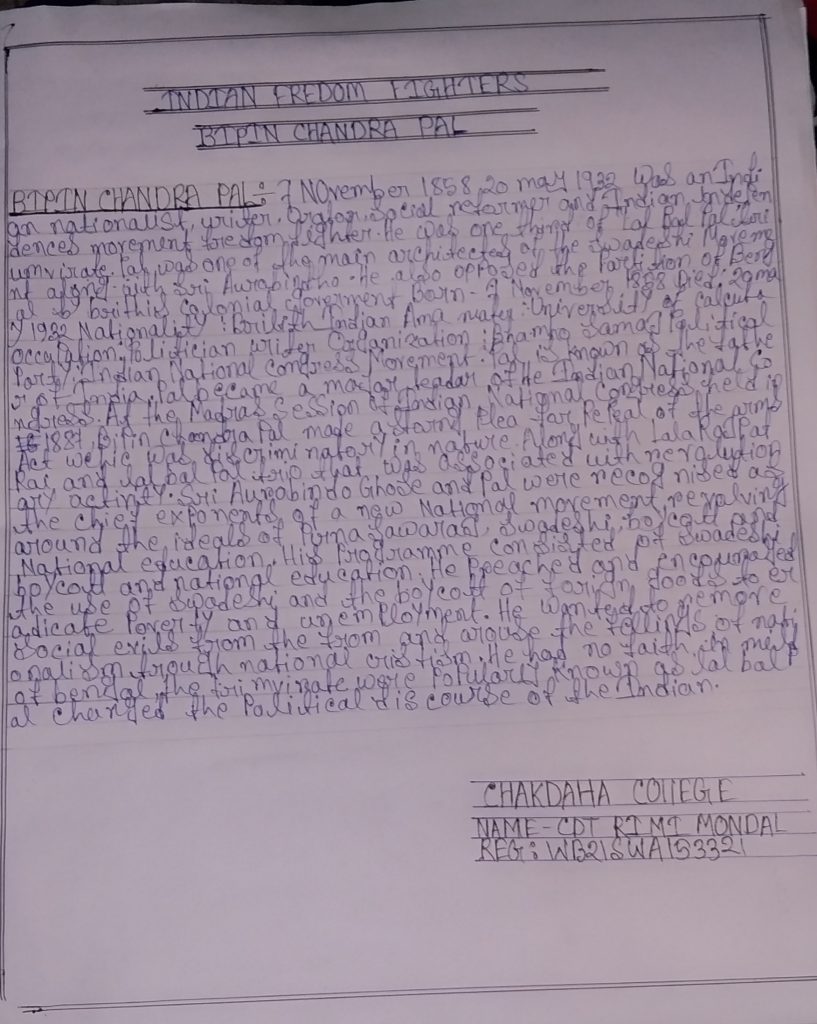 INDIAN FREDOM FIGHTERS
BIPIN CHANDRA PAL
BIPIN CHANDRA PAL:- 7 November 1858, 20 may 1932 Was an Indi
an nationalist, writer, Orator, Social reformer and Indian, Indepen
dences movement freedom fighter. He was one third of Lal Bal Pal
umvirate. Pal was one of the main architected of the Swadeshi Moveme
nt along with Sri Aurobindho. He also opposed the Partition of Beng
al by brithis Colonial goverment Born - 7 November 1858 Died: 20 ma
y 1932 Nationality: British Indian Ama mater: University of Calcuta
Occupation: Politician Writer Organization: Bhamho Samaj Political
Party: Indian National Congress Movement. Pal is known as the fathe
r of India, Pal became a major leadar of the Indian National Co
ngress. At the Madras Session of Indian National Congress held in
1887, Bipin Chandra Pal made a plea for Repeal of the arms
Act wehic was discriminatory in nature. Along with Lala
Rai and Lal bal Pal trio that was associated with revolution
ary activity. Sri Aurobindo Ghose and Pal were recognised as
the chief exponents of a new National movement, revolving
around the ideals of Purna Sawaraj, Swadeshi, boycout and
National education. His Programme consisted of Swadeshi
boycout and national education. He Preached and encouraged
the use of Swadeshi and the boycott of forign Goods to er
adicate Poverty and unemployment. He wanted to remove
Social evils from the from and arouse the fellings of nati
onalism trough national He had no faith in
of bengal, the were Popularly known as lal bal P
al changed the Political discourse of the Indian.
CHAKDAHA COllEGE
NAME - CDT RIMI MONDAL
REG: WB21SWA153321